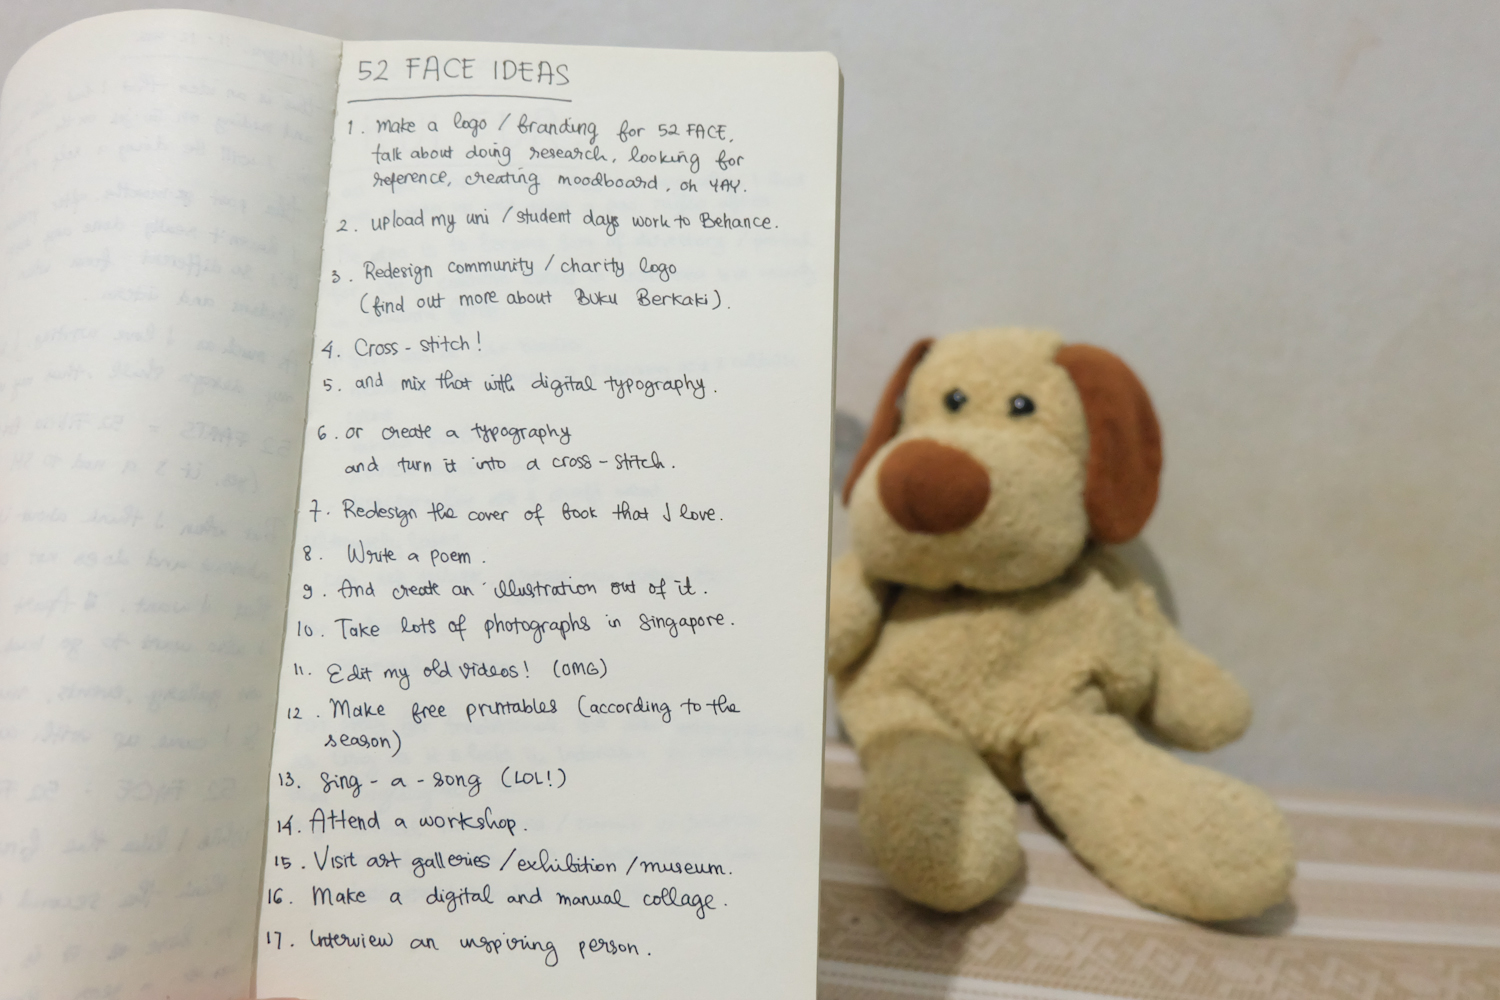 52 FACE IDEAS
1. Make a logo / branding for 52 FACE,
talk about doing research, looking for
reference, creating moodboard, oh YAY.
2. upload my uni / student days work to Behance.
3. Redesign community / charity logo
(find out more about Buku Berkaki).
4. Cross-stitch!
5. and mix that with digital typography.
6. or create a typography
and turn it into a cross-stitch.
7. Redesign the cover of book that I love.
8. Write a poem.
9. And create an illustration out of it.
10. Take lots of photographs in Singapore.
11. Edit my old videos! (OMG)
12. Make free printables (according to the
season)
13. Sing-a-song (LOL!)
14. Attend a workshop.
15. Visit art galleries / exhibition / museum.
16. Make a digital and manual collage.
17. Interview an inspiring person.